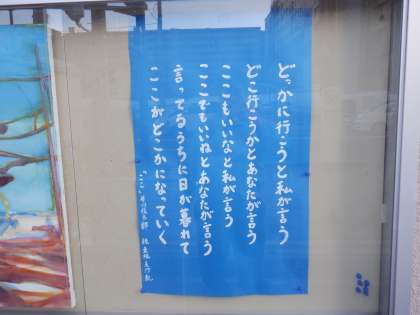 どっかに行こうと私が言う
どこ行こうかとあなたが言う
ここもいいなと私が言う
ここでもいいねとあなたが言う
言ってるうちに日が暮れて
ここがどこかになっていく
「ここ」谷川俊太郎